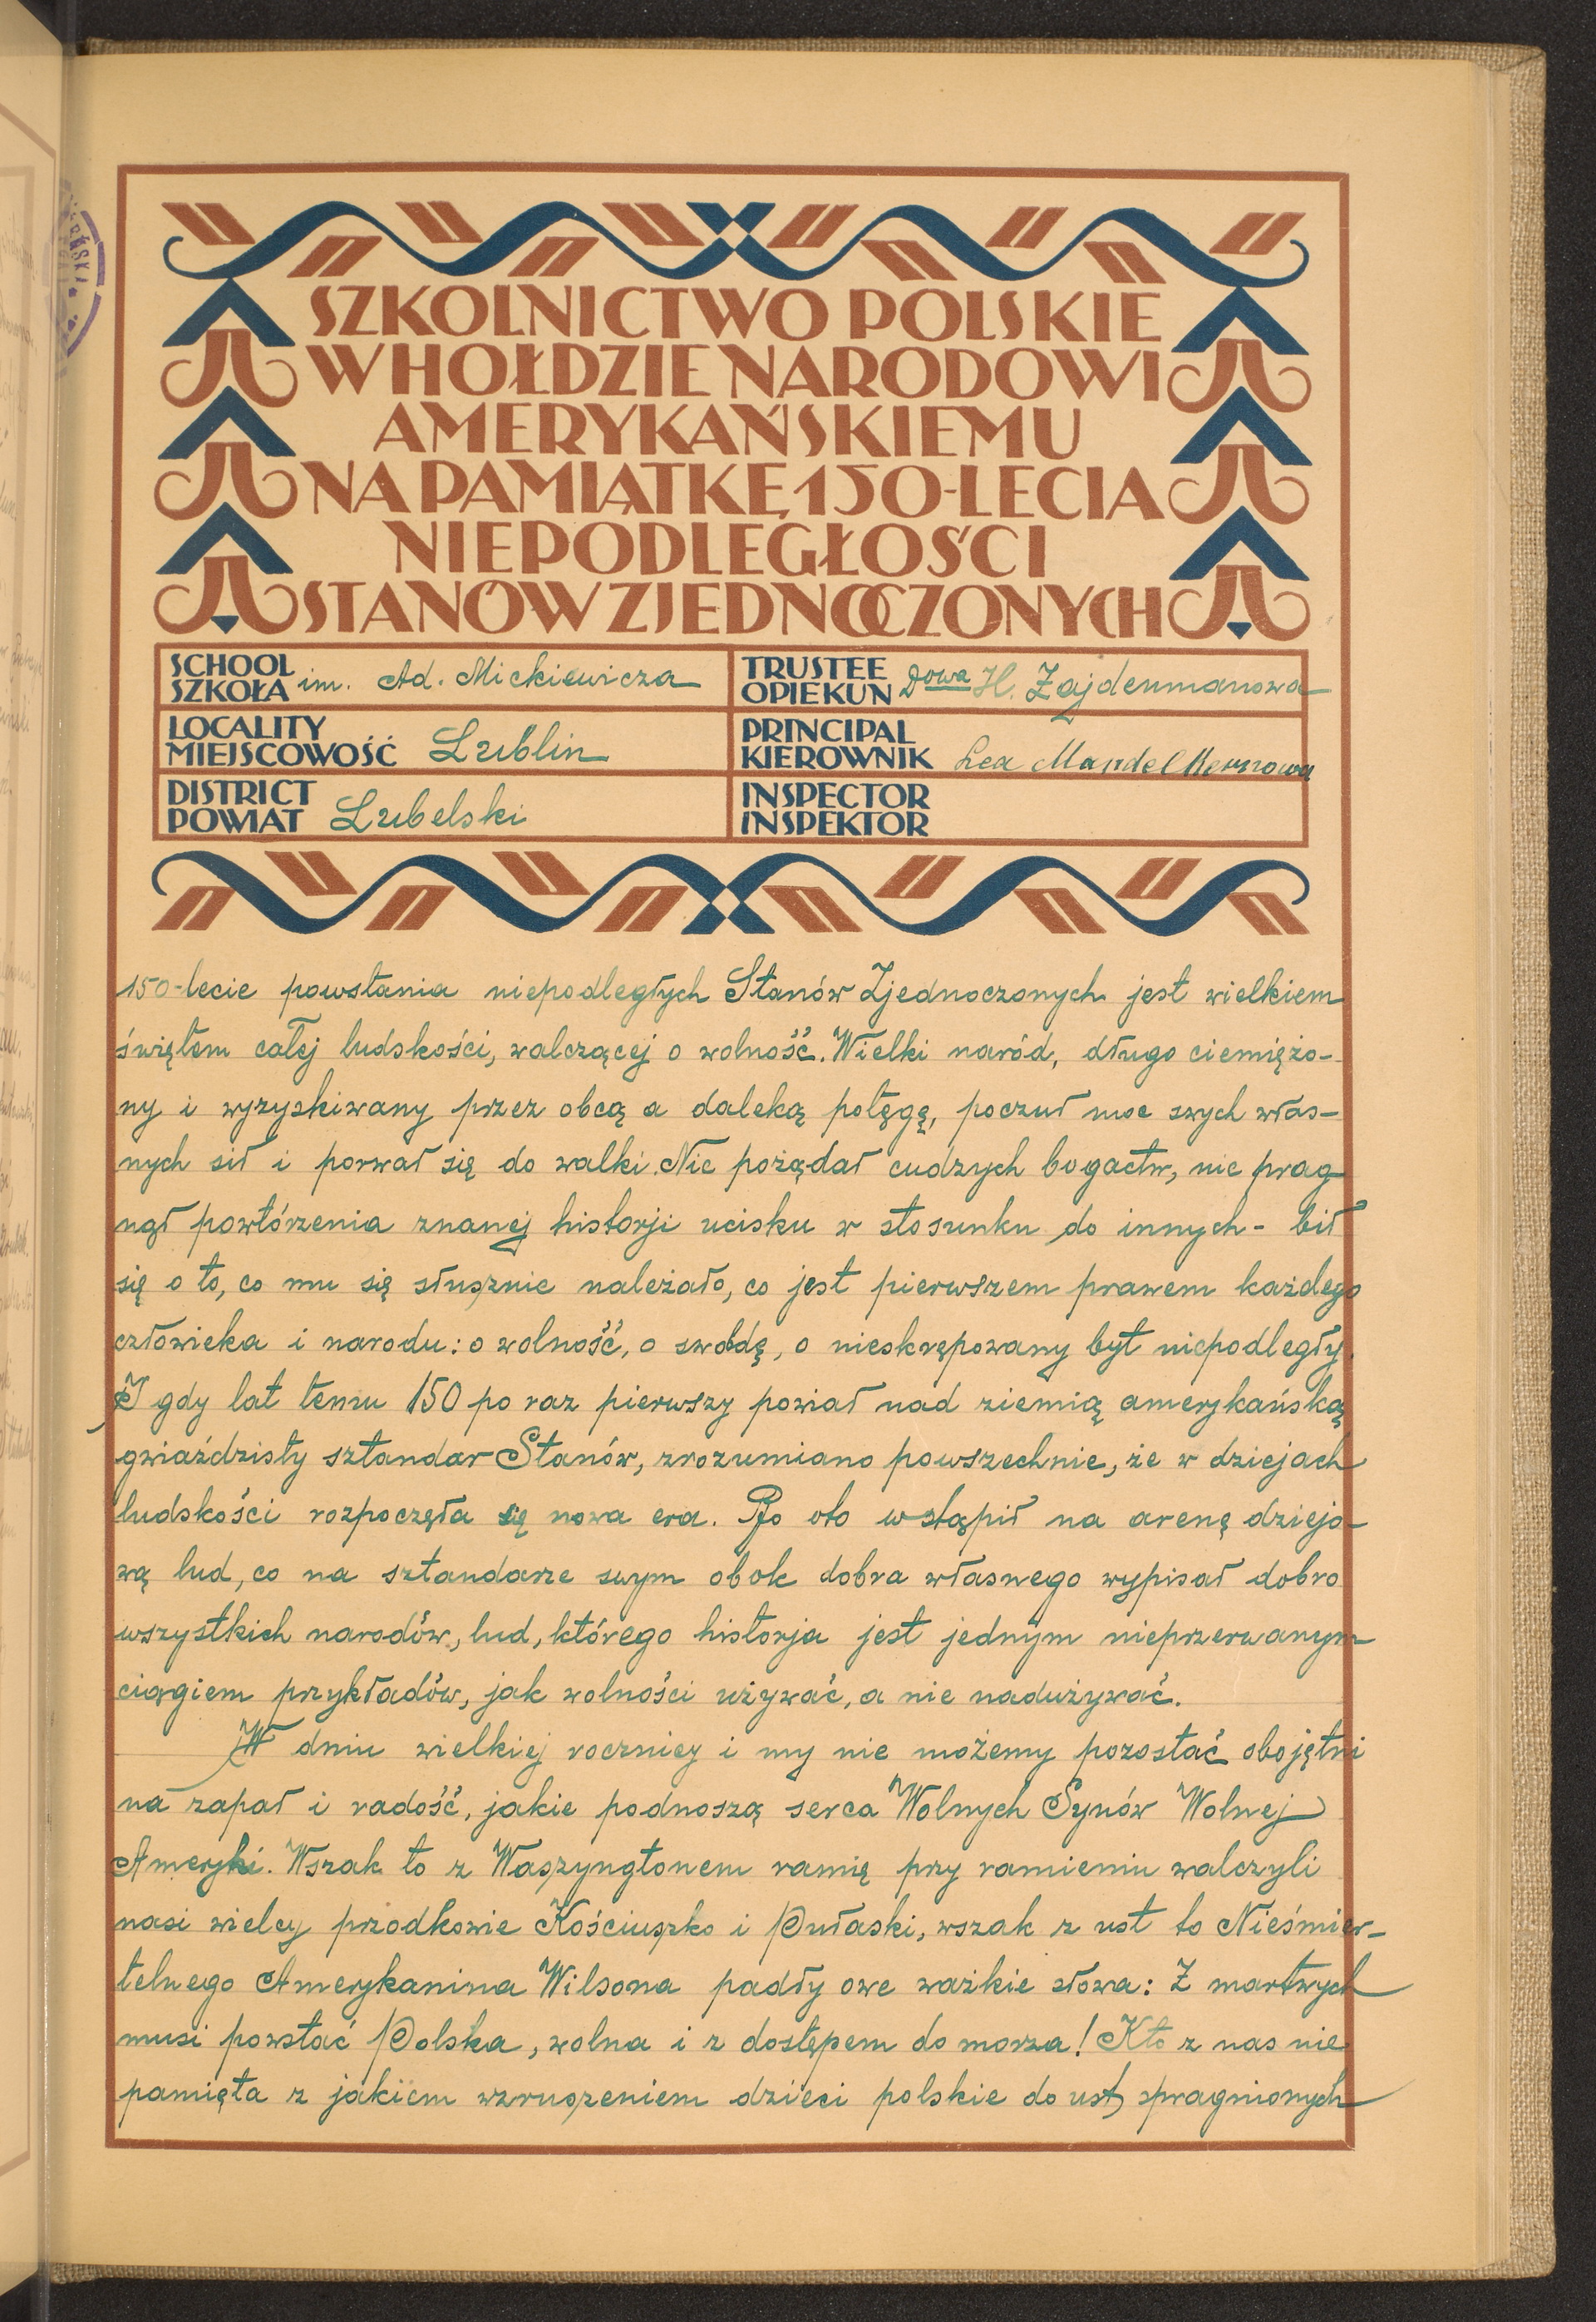 SZKOLNICTWO POLSKIE
W HOŁDZIE NARODOWI
AMERYKAŃSKIEMU
NA PAMIĄTKĘ 150-LECIA
NIEPODLEGŁOŚCI
STANÓW ZJEDNOCZONYCH
SCHOOL
SZKOŁA im. Ad. Mickiewicza
TRUSTEE
OPIEKUN Dowa H. Zajdenmanowa
LOCALITY
MIEJSCOWOŚĆ Lublin
PRINCIPAL
KIEROWNIK Lea Mandelkernowa
DISTRICT
POWIAT Lubelski
INSPECTOR
INSPEKTOR
150-lecie powstania niepodległych Stanów Zjednoczonych jest wielkiem
świętem całej ludskości, walczącej o wolność. Wielki naród, długo ciemiężo-
ny i wyzyskiwany przez obcą a daleką potęgę, poczuł moc swych włas-
nych sił i porwał się do walki. Nie pożądał cudzych bogactw, nie prag-
nął powtórzenia znanej historji ucisku w stosunku do innych - bił
się o to, co mu się słusznie należało, co jest pierwszem prawem każdego
człowieka i narodu: o wolność, o swobdę, o nieskrępowany byt niepodległy.
I gdy lat temu 150 po raz pierwszy powiał nad ziemią amerykańską
gwiaździsty sztandar Stanów, zrozumiano powszechnie, że w dziejach
ludskości rozpoczęła się nowa era. Bo oto wstąpił na arenę dziejo-
wą lud, co na sztandarze swym obok dobra własnego wypisał dobro
wszystkich narodów, lud, którego historja jest jednym nieprzerwanym
ciągiem przykładów, jak wolności używać, a nie nadużywać.
W dniu wielkiej rocznicy i my nie możemy pozostać obojętni
na zapał i radość, jakie podnoszą serca Wolnych Synów Wolnej
Ameryki. Wszak to z Waszyngtonem ramię przy ramieniu walczyli
nasi wielcy przodkowie Kościuszko i Pułaski, wszak z ust to Nieśmier-
telnego Amerykanina Wilsona padły owe ważkie słowa: Z martwych
musi powstać Polska, wolna i z dostępem do morza! Kto z nas nie
pamięta z jakiem wzruszeniem dzieci polskie do ust spragnionych